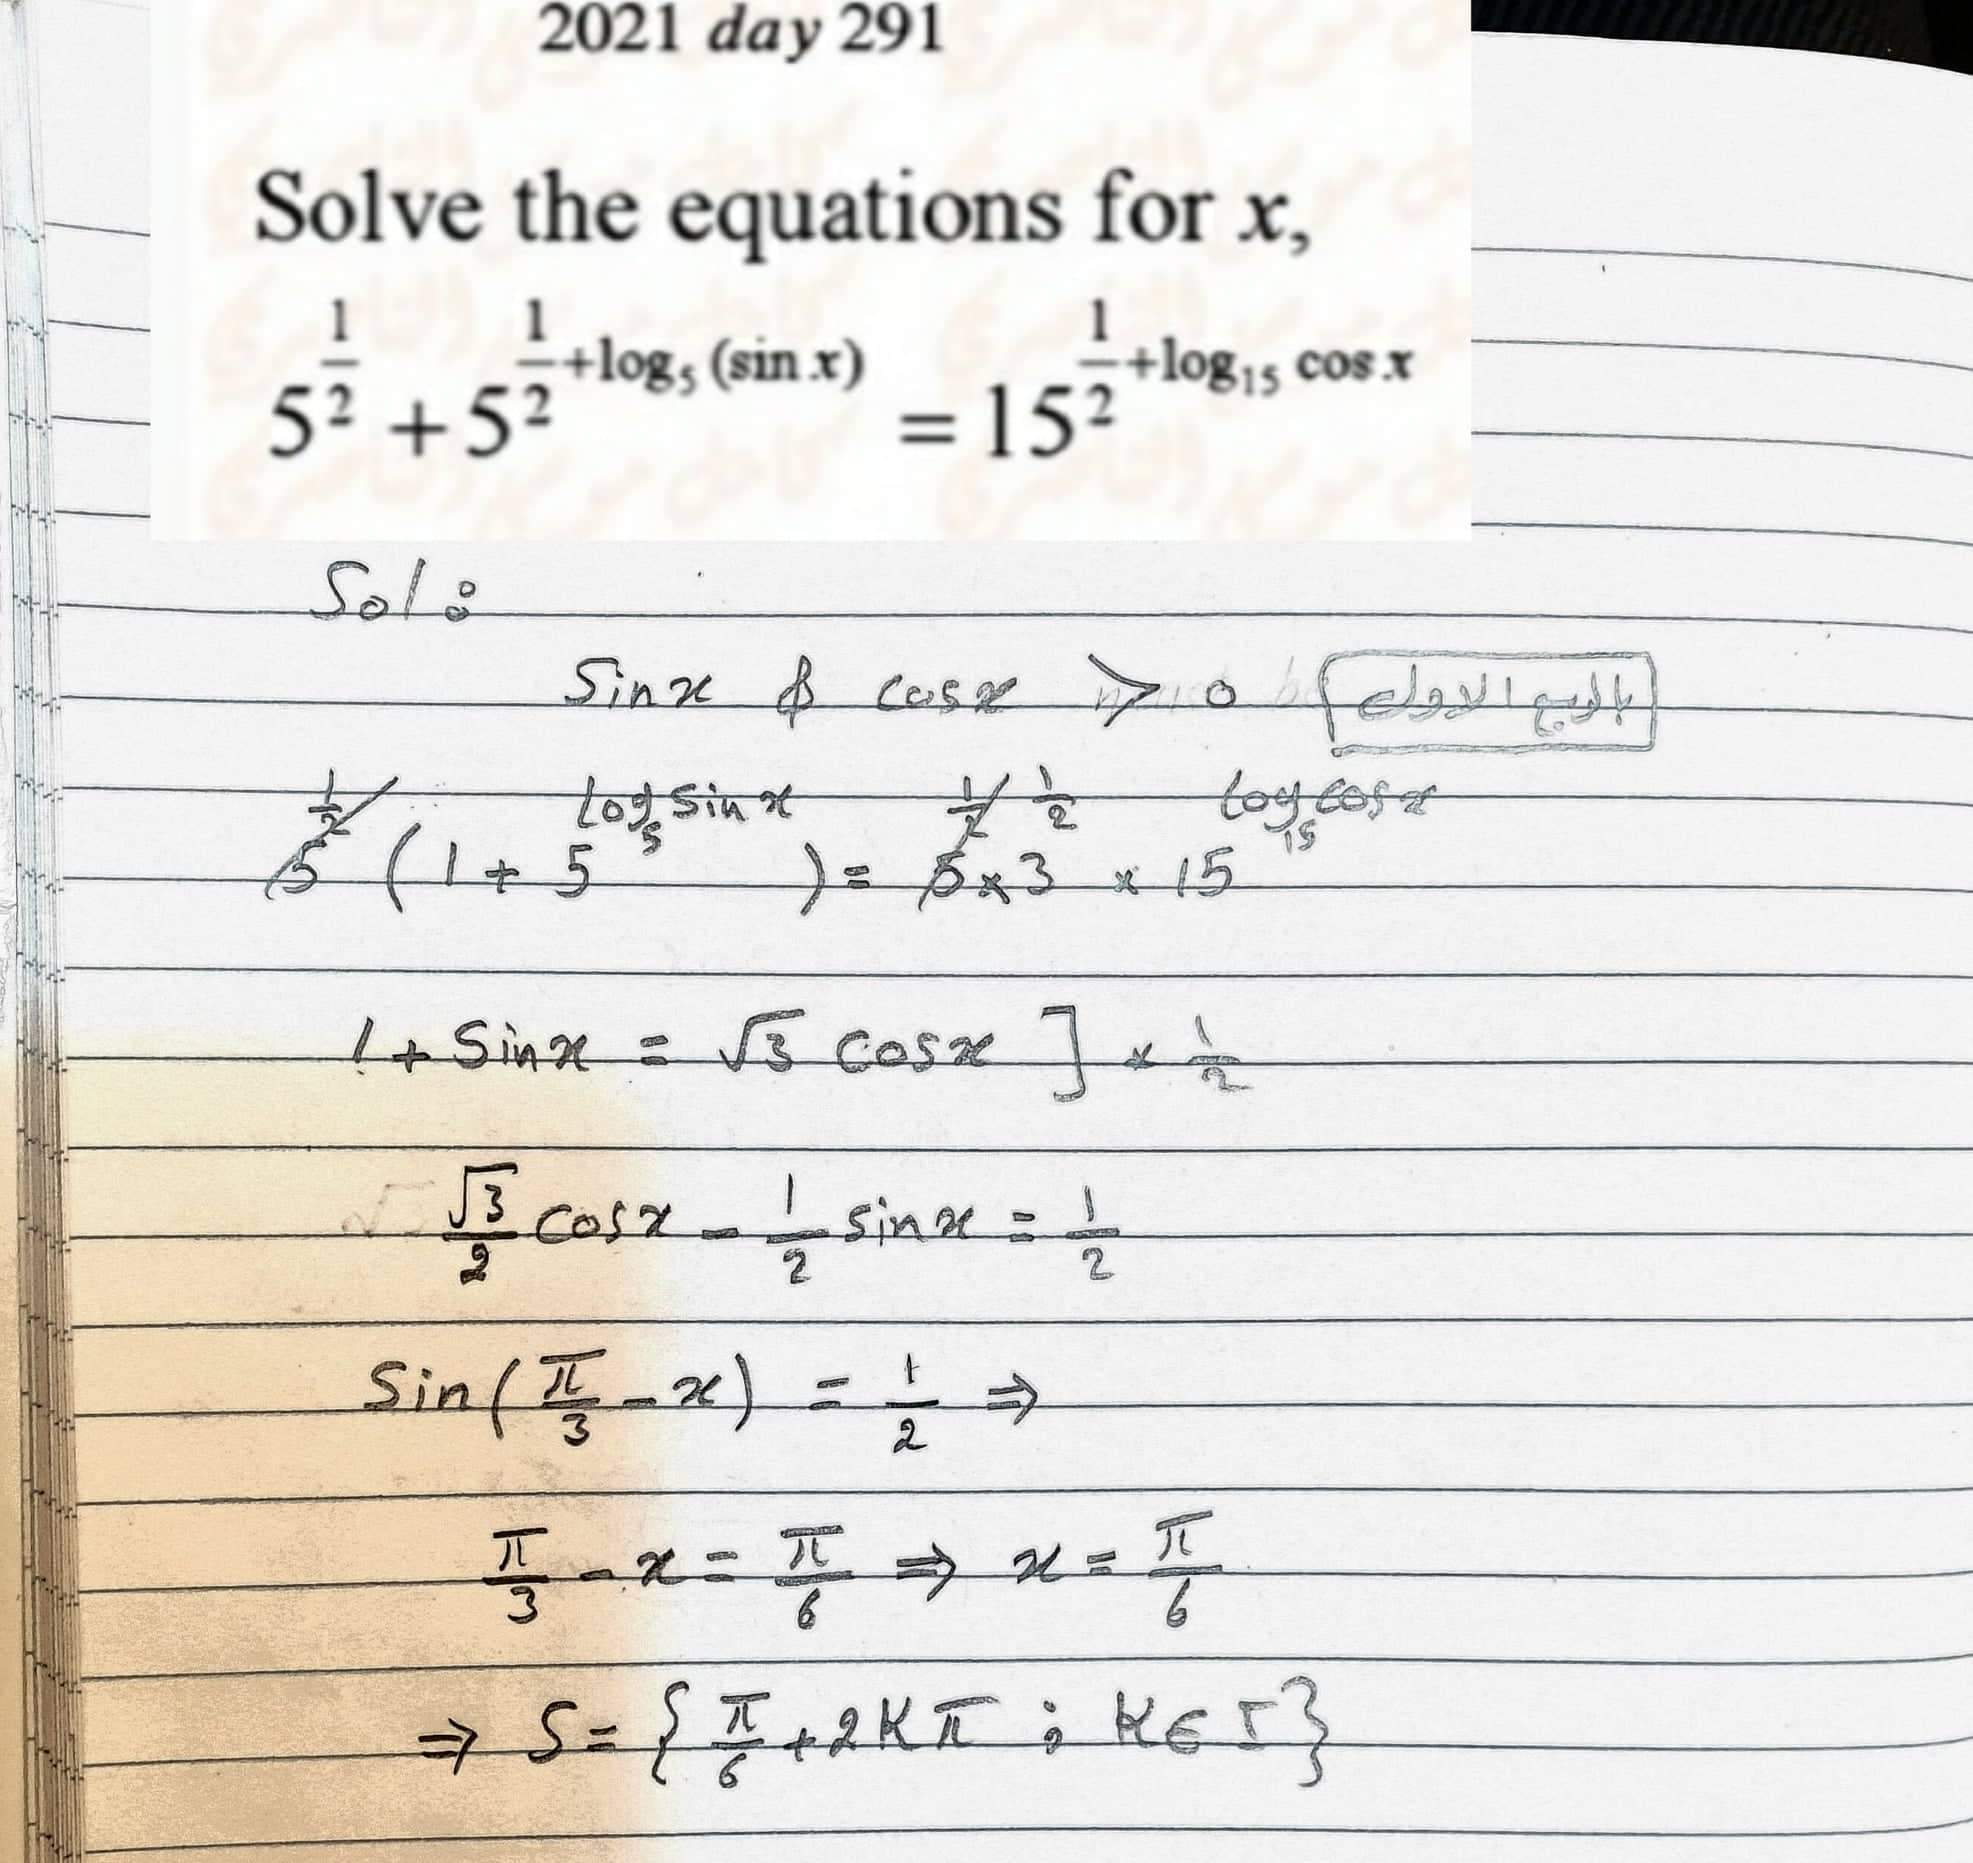 2021 day 291
Solve the equations for x,
5^{1/2} + 5^{1/2 + log₅ (sin x)} = 15^{1/2 + log₁₅ cos x}
Sol:
Sinx & cosx > 0 بالربع الاول
5^{1/2} (1 + 5^{log₅ sin x}) = 5^{1/2} × 3^{1/2} × 15^{log₁₅ cos x}
1 + Sinx = √3 cosx ] × 1/2
√3/2 cosx - 1/2 sinx = 1/2
Sin(π/3 - x) = 1/2 ⇒
π/3 - x = π/6 ⇒ x = π/6
⇒ S = {π/6 + 2Kπ ; K ∈ I}